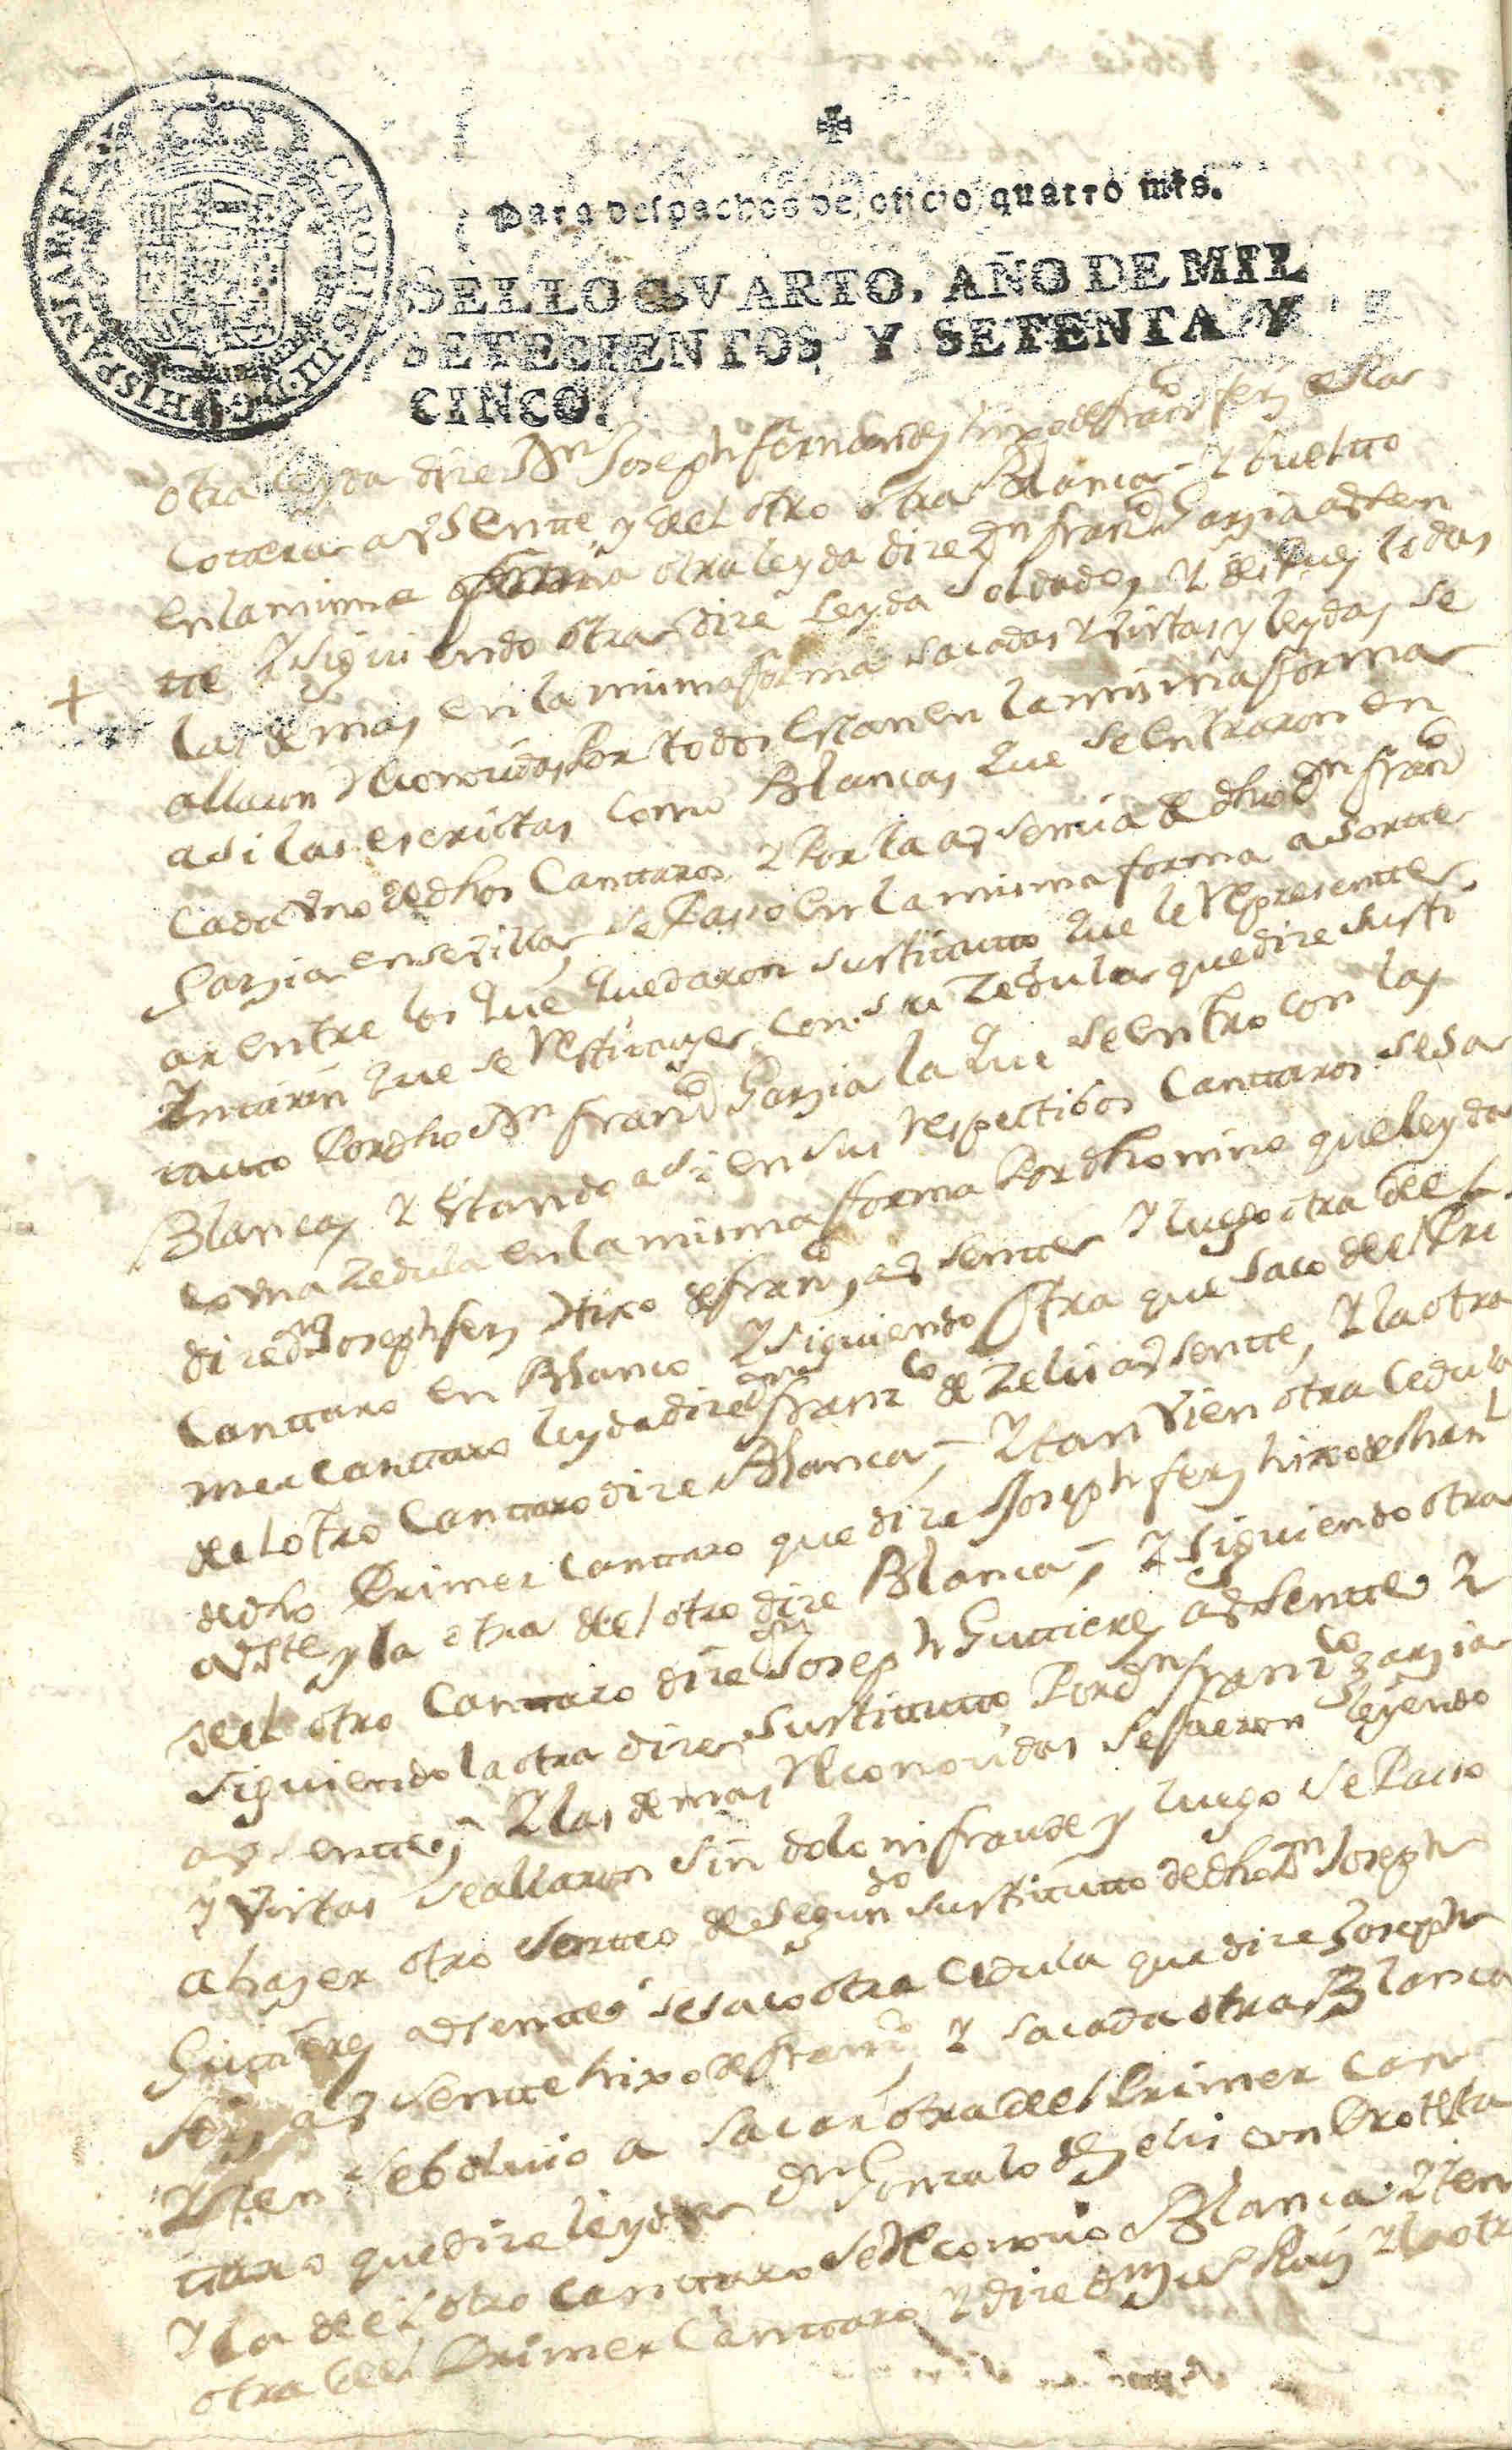 CAROLUS III D G HISPANIAR REX
Para despachos de oficio quatro mrs.
SELLO QVARTO, AÑO DE MIL
SETECIENTOS Y SETENTA Y
CINCO.
otra leyda dize Dn Joseph fernandez hixo de franco ferz
ausentte, y del otro otra Blanca - Y buelto
en la misma forma otra leyda dize Dn franco Garzia ausen
tte Y siguiendo otra dize leyda soldado, Y de que todas
las demas en la misma forma sacadas Y vistas y leydas se
allaron Reconozidas Por todos estan en la misma forma
asi las escrittas como Blancas que se entraron en
Cada Vno de dhos Canttaros, Y Por la ausenzia de dho Dn franco
Garzia en sevilla, se Paso en la misma forma a sortte
ar entre los que quedaron sustitutto que le Represente
Ynterin que se Restituye, con su Zedula que dize susti
tutto Por dho Dn franco Garzia la que se entro con las
Blancas Y estando asi en sus respectibos Canttaros se sa
co vna Zedula en la misma forma Por dho niño que leyda
dize Dn Joseph ferz Hixo de franco, ausentte Y luego otra del
Canttaro en Blanco Y siguiendo otra que saco del Pri
mer canttaro leyda dize Dn franco de Zelis ausentte, Y la otra
del otro Canttaro dize Blanca, - Y tan vien otra Cedula
de dho Primer canttaro que dize Joseph ferz hixo de
auste y la otra del otro dize Blanca, - Y siguiendo otra
del otro Canttaro dize Dn Joseph Guttierez ausentte Y
siguiendo la otra dize sustitutto Por Dn franzco garzia
ausentte, - Y las demas Reconozidas se fueron leyendo
y vistas se allaron sin dolo ni fraude y luego se Paso
a hazer otro sortteo de segundo sustitutto de dho Dn Joseph
Guttierez ausentte se saco otra cedula que dize Joseph
ferz ausentte hixo de franco, Y sacada otra Blanca
Yten se bolvio a sacar otra del Primer can
ttaro que dize leyda Dn Gonzalo de Zelis con Protesta
Y la del otro canttaro se Reconozio Blanca Yten
otra del Primer Canttaro Y dize Dn Ruiz Y la otra